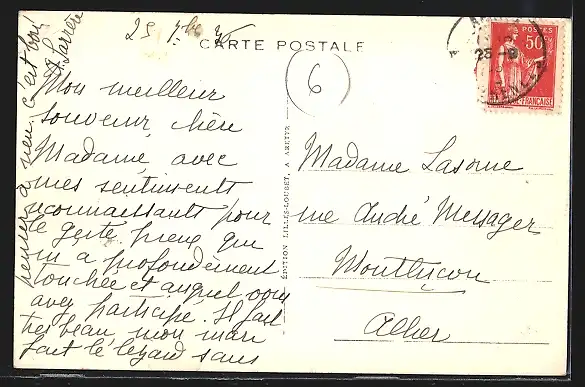 25 7bre
CARTE POSTALE
6
POSTES
50
FRANÇAISE
25-9
Mon meilleur
souvenir, chère
Madame, avec
mes sentiments
reconnaissants pour
le geste pieux que
m'a profondément
touchée et auquel vous
avez participé. Il fait
très beau, mon mari
fait le lézard sans
penser à rien. C'est bon!
ÉDITION LILLES-LOUBET, A
Madame Lasome
rue André Messager
Montluçon
Allier